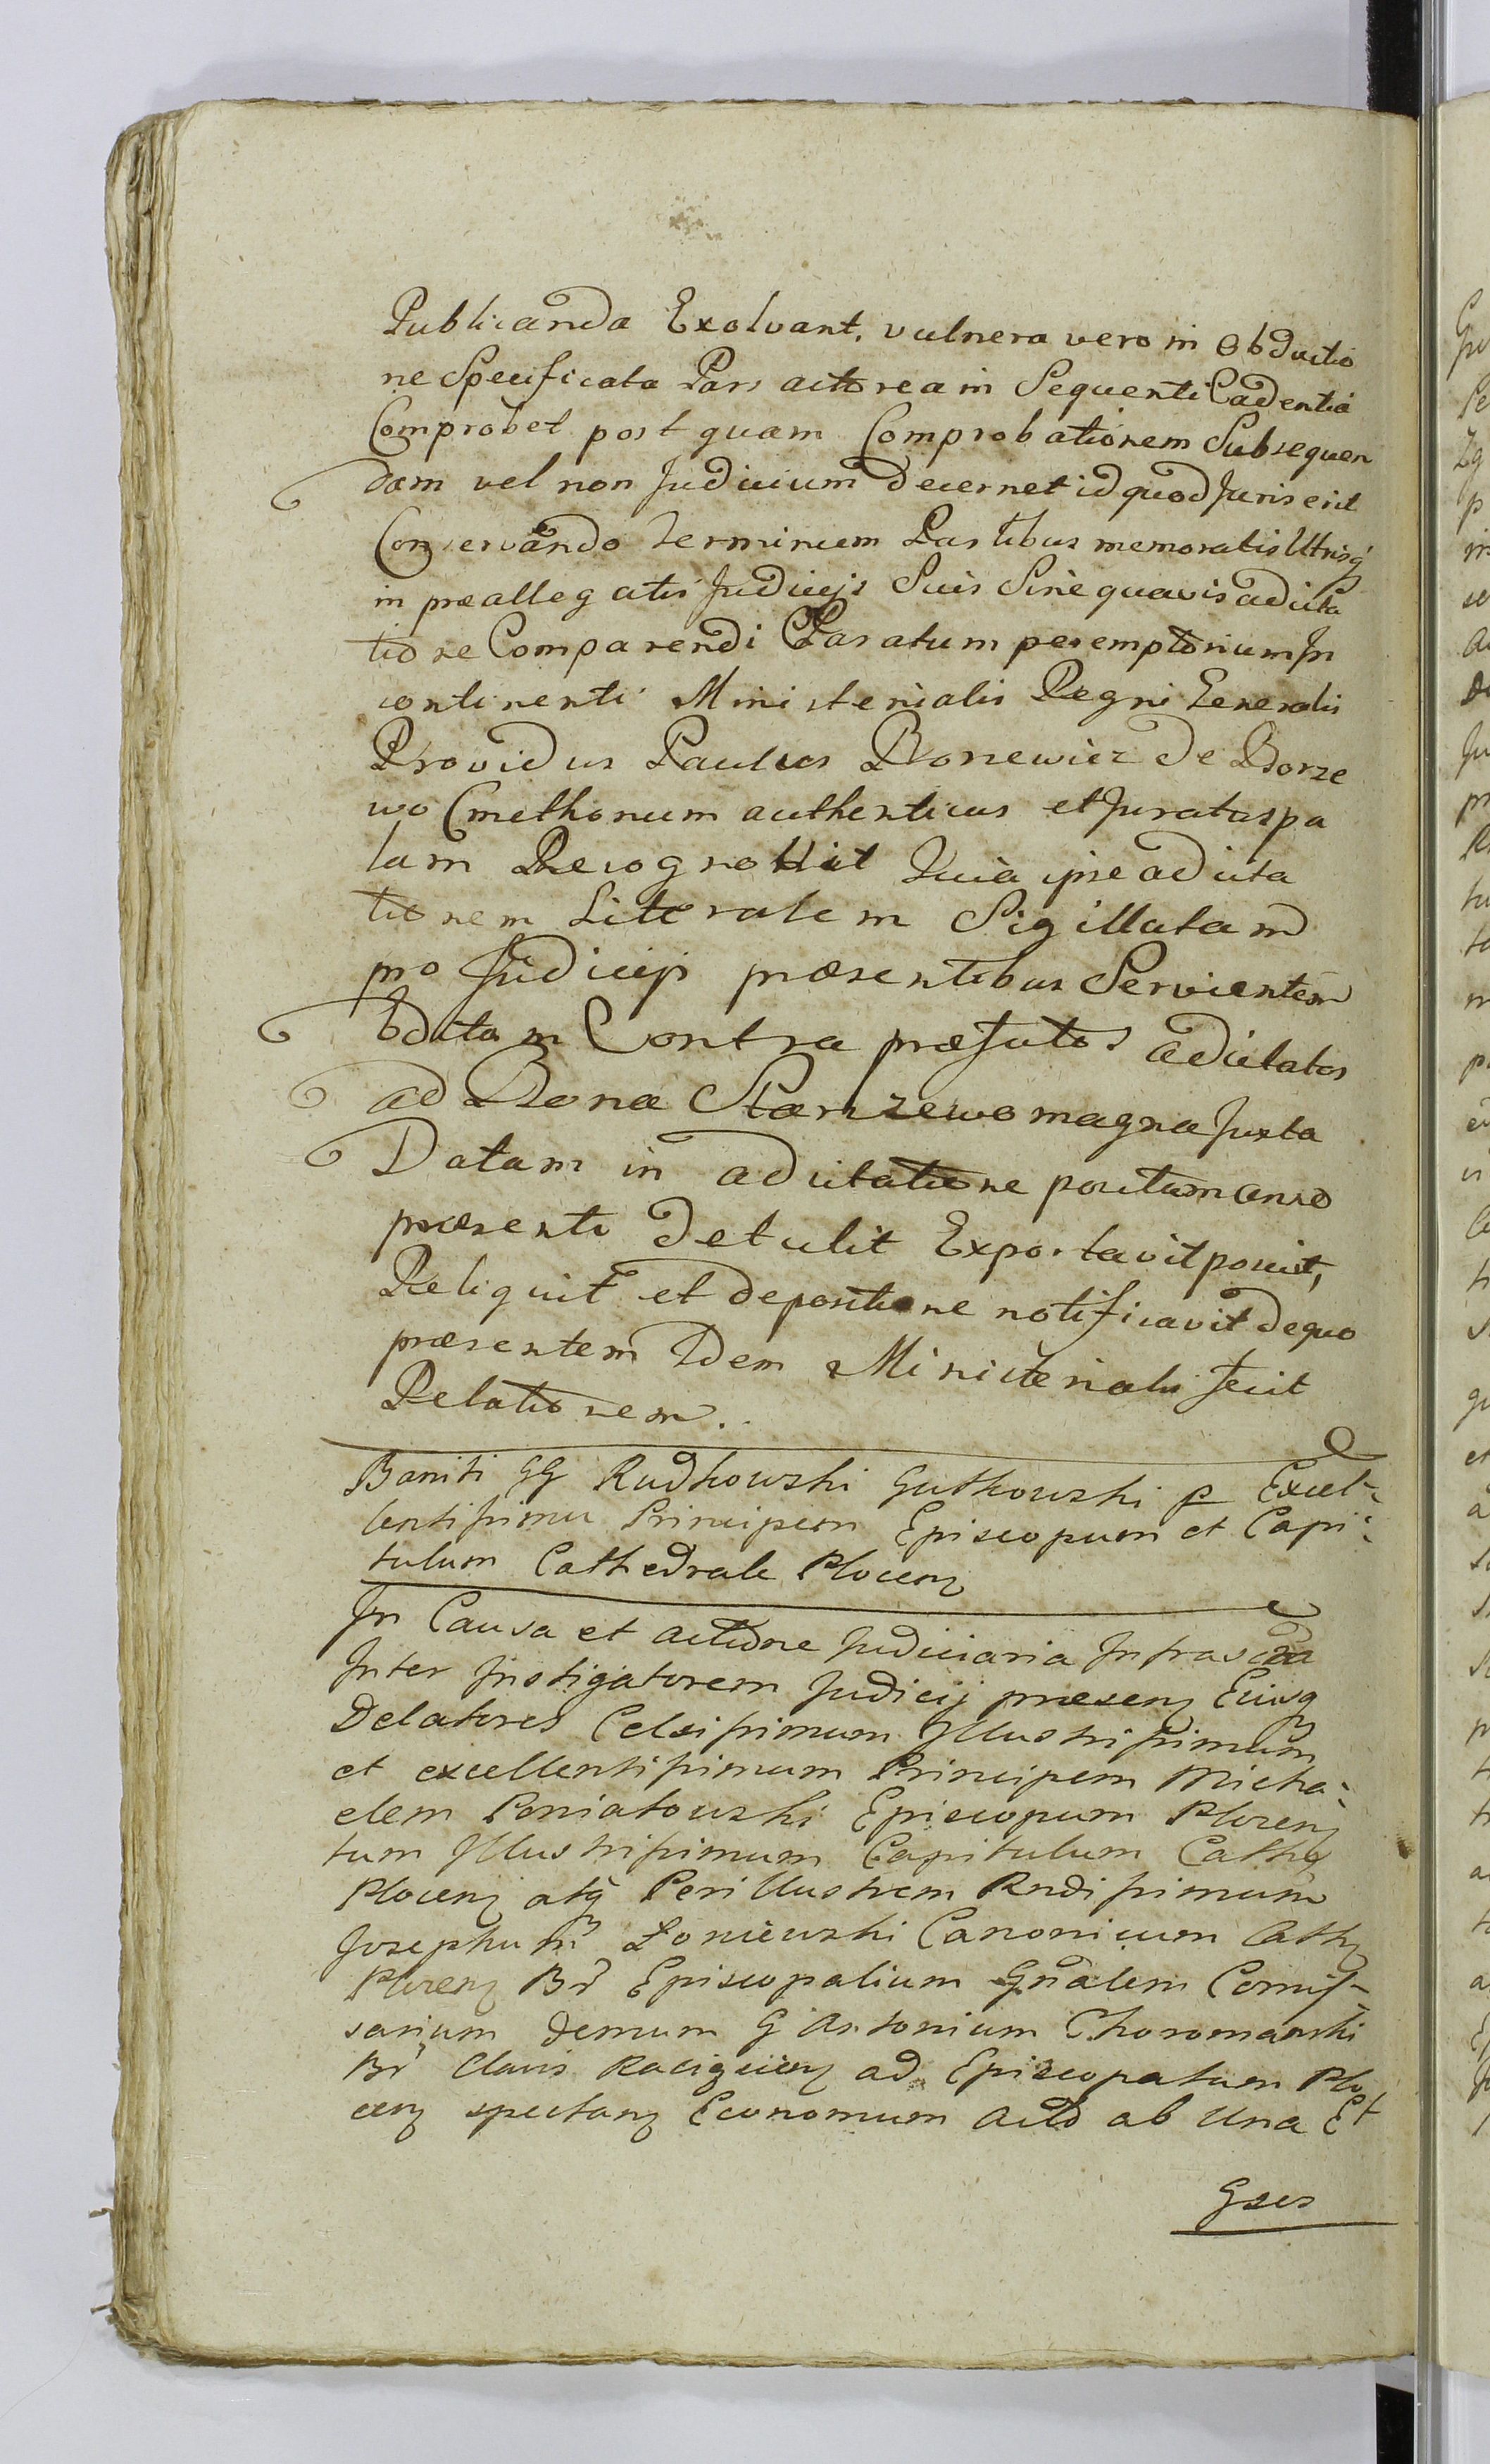 Publicanda Exolvant, vulnera vero in Obductio
ne Specificata Pars actorea in Sequenti Cadentia
Comprobet post quam Comprobationem Subsequen
dam vel non Judicium decernet id quod Juris erit
Conservando terminum Partibus memoratis Utrisq
in præallegatis Judicijs Suis Sine quavis adcita
tione Comparendi Paratum peremptorium In
continenti Ministerialis Regni Generalis
Providus Paulus Bonewicz de Borze
wo Cmethonum authenticus et Juratus pa
lam Recognovit Quia ipse adcita
tionem Literalem Sigillatam
pro Judicijs præsentibus Servientem
Editam Contra præfatos adcitatos
ad Bona Starzewo magna Juxta
Datam in adcitatione positam anno
præsenti detulit Exportavit posuit,
Reliquit et depositione notificavit de quo
præsentem Idem Ministerialis fecit
Relationem.
Baniti GG Rudkowski Gutkowski p Excel-
lentissimu Principem Episcopum et Capi-
tulum Cathedrale Plocen
In Causa et actione Judiciaria Infrascrpta
Inter Instigatorem Judicij præsen Eiusq
Delatores Celsissimum Illustrissimum
et excellentissimum Principem Micha-
elem Poniatowski Episcopum Plocen
tum Illustrissimum Capitulum Cath
Plocen atq Perillustrem Rndissimum
Josephum Łoniewski Canonicum Cath
Plocen Br Episcopalium Gnalem Comis-
sarium demum G Antonium Choromanski
Br Clavis Raciązien ad Episcopatum Plo
cen spectan Economum Acto ab Una Et
Gsus